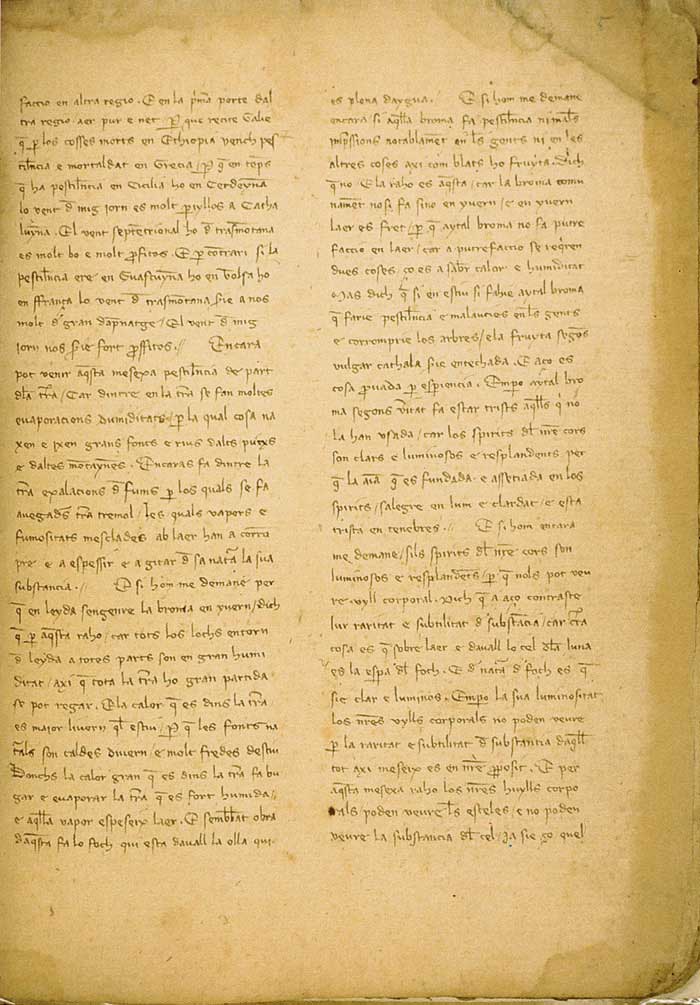 faccio en altra regio. E en la p̄ma porte dal
tra regio aer pur e net. Per que recite Galie
q̄ p̱ los cossos morts en Ethiopia vench pes
tilēcia e mortaldat en Grecia / p̱ q̄ en tēps
q̄ ha pestilēcia en Cicilia ho en Cerdeyna
lo vent d̄ mig iorn es molt p̱illos a Catha
lunya. El vent septētrional ho d̄ trasmōtana
es molt bo e molt p̱fitos. E p̱ contrari si la
pestilēcia ere en Guascunya ho en
en ffrança lo vent d̄ trasmōtana s̄ie a nos
molt d̄ gran dāpnatge / El vent d̄ mig
iorn nos s̄ie fort p̱ffitos. // Encara
pot venir aq̄sta mesexa pestilēcia de part
dl̄a tr̄a / Car dintre en la tr̄a se fan moltes
evaporacions dumiditats / p̱ la qual cosa na
xen e ixen grans fonts e rius dalts puigs
e daltes motaynes. Encaras fa dintre la
tr̄a exalacions d̄ fums p̱ los quals se fa
avegad̄s tr̄a tremol / les quals vapors e
fumositats mesclades ab laer han a corrō
pre e a espessir e a gitar d̄ sa nat̄a la sua
substancia. // E si hom me demane per
q̄ en leyda sengenre la broma en yvern / dich
q̄ p̱ aq̄sta raho / car tots los lochs entorn
d̄ leyda a totes parts son en gran humi
ditat / axi q̄ tota la tr̄a ho gran partida
se pot regar. E la calor q̄ es dins la tr̄a
es maior livern ql̄ estiu / p̱ q̄ les fonts na
t̄als son caldes divern e molt fredes destiu
Donchs la calor gran q̄ es dins la tr̄a fa bu
gar e evaporar la tr̄a q̄ es fort humida /
e aq̄lla vapor espeseix laer. E semblāt obra
daq̄sta fa lo foch qui esta davall la olla qui
es plena daygua. // E si hom me demane
encara si aq̄lla broma fa pestilēcia ni mal̄s
imp̄ssions notablamēt en ls̄ gents ni en les
altres coses axi com blats ho fruyta. Dich
q̄ no. E la raho es aq̄sta / car la broma comu
namēt nos fa sino en yvern / e en yvern
laer es fret / p̱ q̄ aytal broma no fa putre
faccio en laer / car a putrefaccio se req̄ren
dues coses co es a sab̄r calor e humiditat
Mas dich q̄ si en estiu si fahie aytal broma
q̄ farie pestilēcia e malauties en ls̄ gents
e corromprie los arbres / e la fruyta segōs
vulgar cathala s̄ie entechada. E aço es
cosa p̱vada p̱ espiencia. Empo aytal bro
ma segons v̄itat fa estar trists aq̄lls q̄ no
la han vsada / car los spirits dl̄ nr̄e cors
son clars e luminosos e resplandents per
q̄ la aīa q̄ es fundada e assetiada en los
spirits / salegre en lum e clardat / e esta
trista en tenebres. // E si hom encara
me demane / sils spirits dl̄ nr̄e cors son
luminosos e resplandēts / p̱ q̄ nols pot veu
re vyll corporal. Dich q̄ a aço contraste
lur raritat e subtilitat d̄ substācia / car cr̄ta
cosa es q̄ sobre laer e davall lo cel dl̄a luna
es la espa dl̄ foch. E d̄ nat̄a d̄ foch es q̄
sie clar e luminos. Empo la sua luminositat
los nr̄es vylls corporals no poden veure
p̱ la raritat e subtilitat d̄ substancia daq̄ll
tot axi meseix es en nr̄e p̱posit. E per
aq̄sta mesexa raho los nr̄es huylls corpo
rals / poden veure ls̄ esteles / e no poden
veure la substancia dl̄ cel / ja sie ço quel